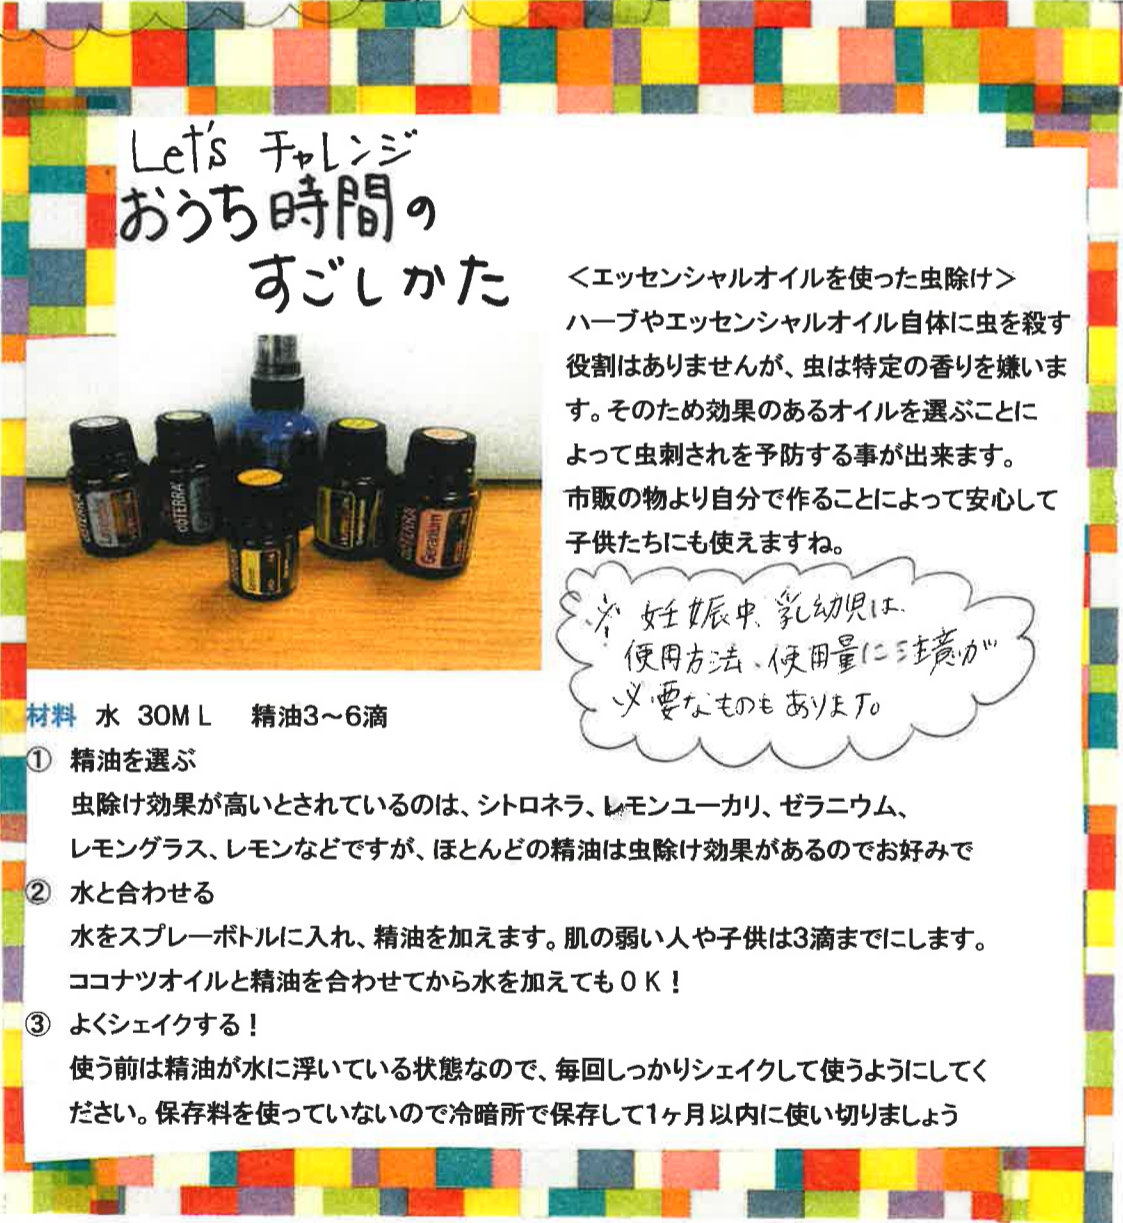 Let's チャレンジ
おうち時間の
すごしかた
＜エッセンシャルオイルを使った虫除け＞
ハーブやエッセンシャルオイル自体に虫を殺す
役割はありませんが、虫は特定の香りを嫌いま
す。そのため効果のあるオイルを選ぶことに
よって虫刺されを予防する事が出来ます。
市販の物より自分で作ることによって安心して
子供たちにも使えますね。
※ 妊娠中、乳幼児は、
使用方法、使用量に注意が
必要なものもあります。
dōTERRA
dōTERRA
dōTERRA
Geranium
材料 水 30ＭＬ 精油3～6滴
① 精油を選ぶ
虫除け効果が高いとされているのは、シトロネラ、レモンユーカリ、ゼラニウム、
レモングラス、レモンなどですが、ほとんどの精油は虫除け効果があるのでお好みで
② 水と合わせる
水をスプレーボトルに入れ、精油を加えます。肌の弱い人や子供は3滴までにします。
ココナツオイルと精油を合わせてから水を加えてもＯＫ！
③ よくシェイクする！
使う前は精油が水に浮いている状態なので、毎回しっかりシェイクして使うようにしてく
ださい。保存料を使っていないので冷暗所で保存して1ヶ月以内に使い切りましょう